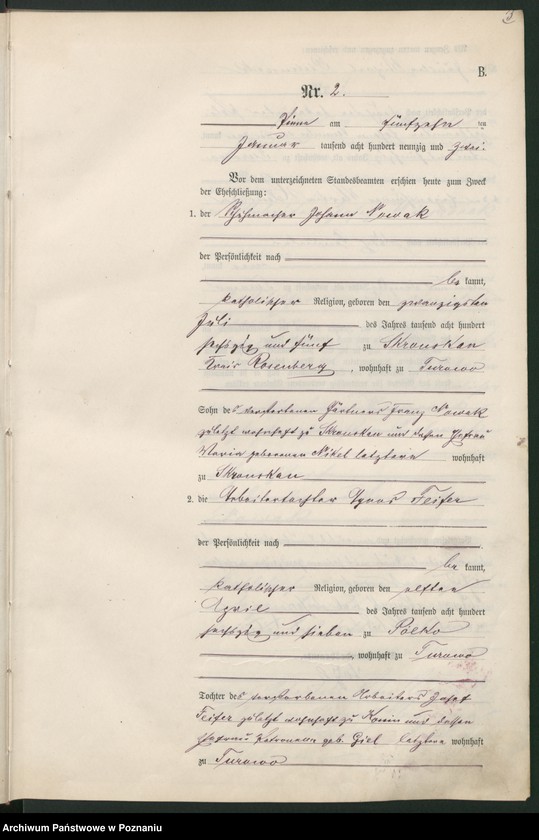 3
B.
Nr. 2.
Pinne am fünfzehn ten
Januar tausend acht hundert neunzig und zwei.
Vor dem unterzeichneten Standesbeamten erschien heute zum Zweck
der Eheschließung:
1. der Johann Nowak
der Persönlichkeit nach
be kannt,
katholischer Religion, geboren den zwanzigsten
Juli des Jahres tausend acht hundert
sechszig und fünf zu Skronskau
Kreis Rosenberg, wohnhaft zu Turowo
Sohn des verstorbenen Gärtners Franz Nowak
zuletzt wohnhaft zu Skronskau und dessen Ehefrau
Maria geborenen letztere wohnhaft
zu Skronskau
2. die Arbeitertochter Agnes Feifer
der Persönlichkeit nach
be kannt,
katholischer Religion, geboren den elften
April des Jahres tausend acht hundert
sechszig und sieben zu Polko
, wohnhaft zu Turowo
Tochter des verstorbenen Arbeiters Josef
Feifer zuletzt wohnhaft zu Konin und dessen
Ehefrau geb. Giel letztere wohnhaft
zu Turowo
Archiwum Państwowe w Poznaniu